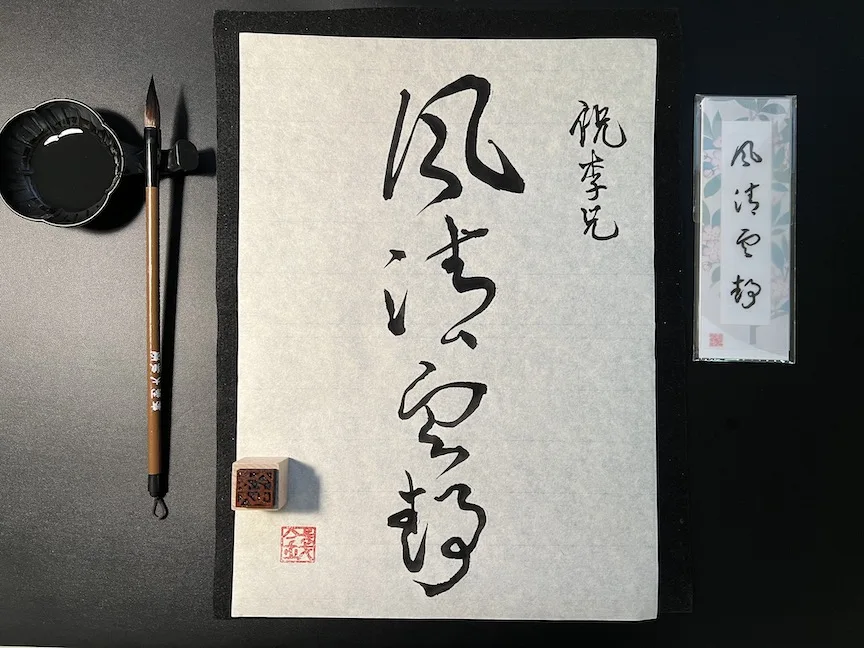 祝李兄
風清雲靜
風清雲靜